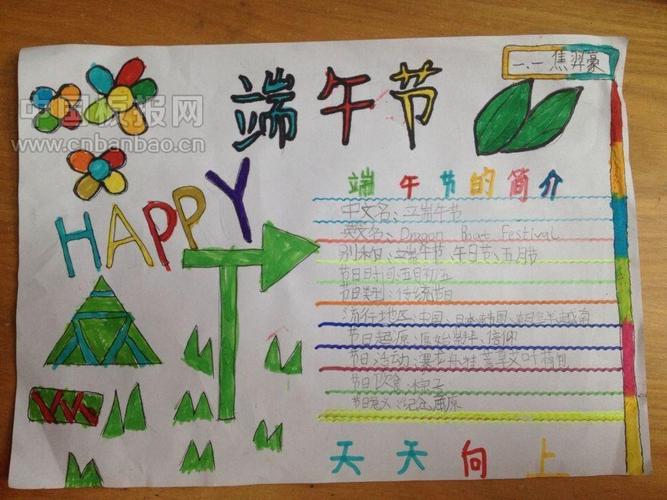 中国板报网
www.cnbanbao.cn
端午节
一.一 焦羿豪
HAPPY
端午节的简介
中文名:端午节
英文名:Dragon Boat Festival
别称:端午节、午日节、五月节
节日时间:五月初五
节日类型:传统节日
流行地区:中国、日本
节日起源:原始崇拜、信仰
节日活动:赛龙舟
节日饮食:粽子
节日意义:纪念屈原
天天向上